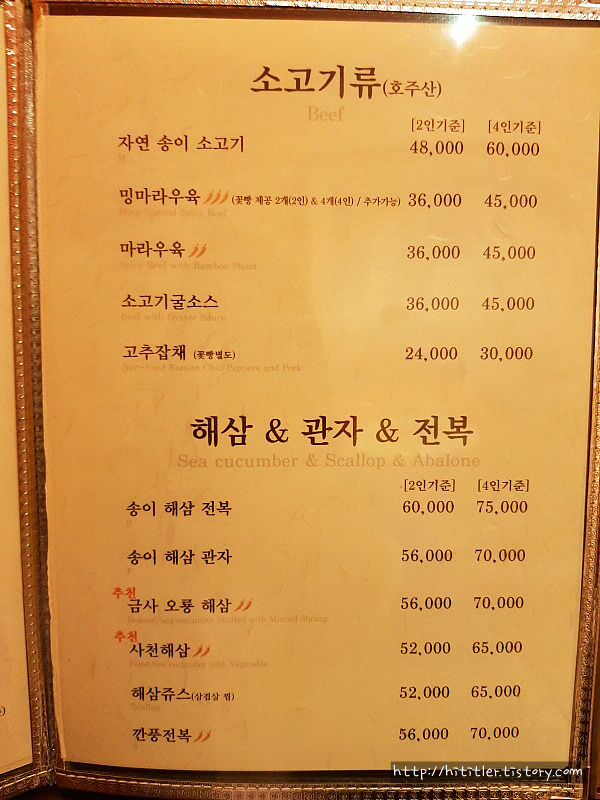 소고기류(호주산)
Beef
[2인기준] [4인기준]
자연 송이 소고기 48,000 60,000
밍마라우육 (꽃빵 제공 2개(2인) & 4개(4인) / 추가가능) 36,000 45,000
Ming Special Spicy Beef
마라우육 36,000 45,000
Spicy Beef with Bamboo Shoot
소고기굴소스 36,000 45,000
Beef with Oyster Sauce
고추잡채 (꽃빵별도) 24,000 30,000
Stir-fried Korean Chili Peppers and Pork
해삼 & 관자 & 전복
Sea cucumber & Scallop & Abalone
[2인기준] [4인기준]
송이 해삼 전복 60,000 75,000
송이 해삼 관자 56,000 70,000
추천
금사 오룡 해삼 56,000 70,000
Sea cucumber Stuffed with Minced Shrimp
추천
사천해삼 52,000 65,000
Sea cucumber with Vegetable
해삼쥬스(삼겹살 찜) 52,000 65,000
Scallop
깐풍전복 56,000 70,000
http://hititler.tistory.com